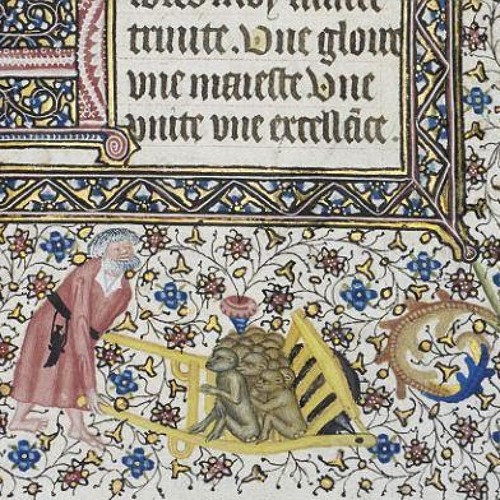 trinite. Vne gloire
vne maieste Vne
vnite vne excellāce.